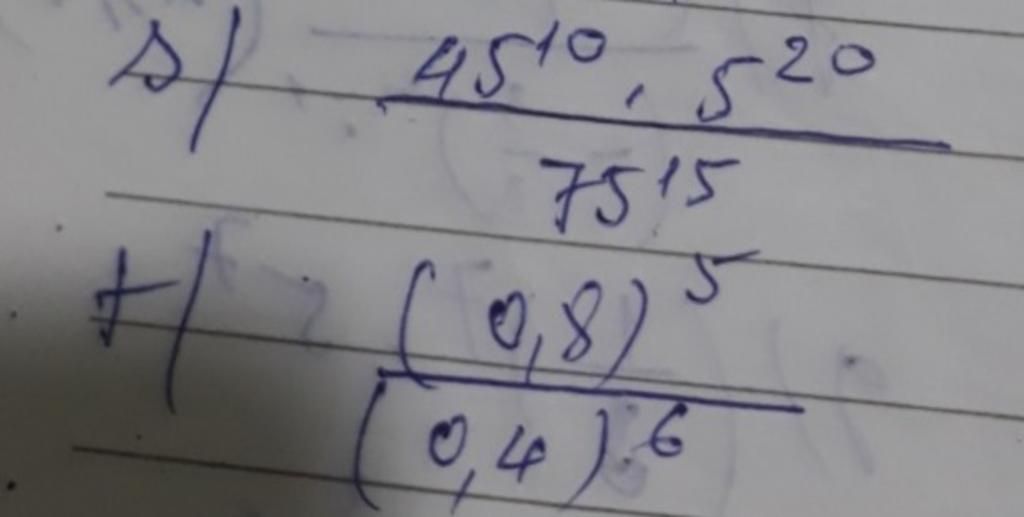 s/ 45¹⁰ . 5²⁰
75¹⁵
t/ (0,8)⁵
(0,4)⁶